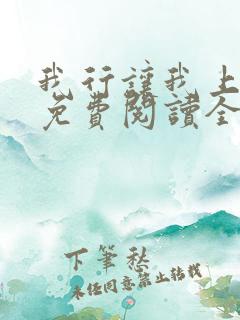 我行讓我上
免費閱讀全
下筆愁
未經同意禁止轉載